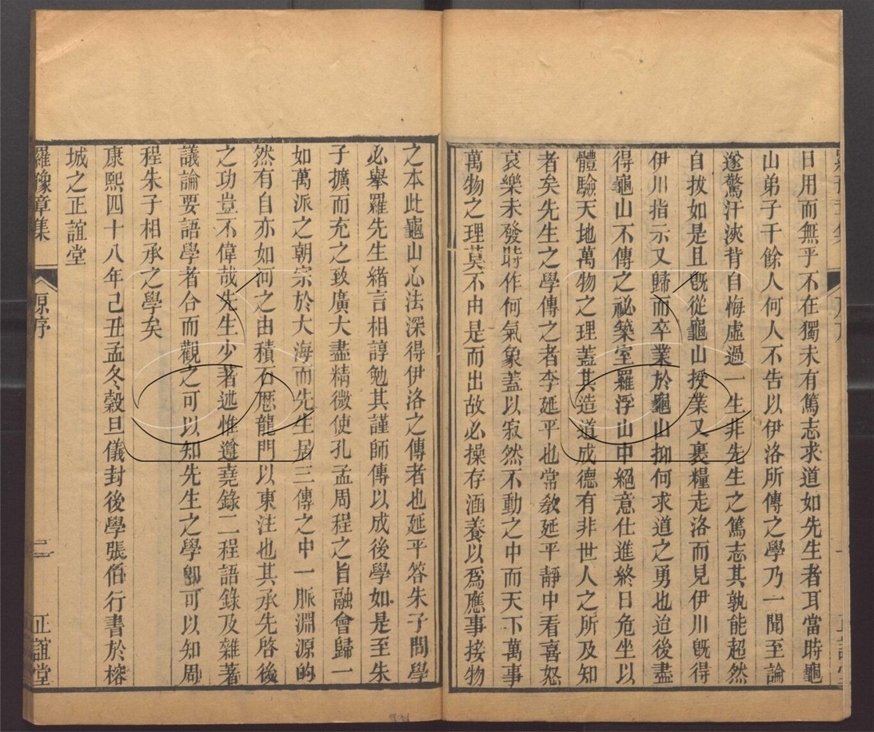 日用而無乎不在獨未有篤志求道如先生者耳當時龜
山弟子千餘人何人不告以伊洛所傳之學乃一聞至論
遂驚汗浹背自悔虛過一生非先生之篤志其孰能超然
自拔如是且旣從龜山授業又裹糧走洛而見伊川旣得
伊川指示又歸而卒業於龜山抑何求道之勇也迨後盡
得龜山不傳之祕築室羅浮山中絕意仕進終日危坐以
體驗天地萬物之理蓋其造道成德有非世人之所及知
者矣先生之學傳之者李延平也常敎延平靜中看喜怒
哀樂未發時作何氣象蓋以寂然不動之中而天下萬事
萬物之理莫不由是而出故必操存涵養以爲應事接物
之本此龜山心法深得伊洛之傳者也延平答朱子問學
必舉羅先生緒言相諄勉其謹師傳以成後學如是至朱
子擴而充之致廣大盡精微使孔孟周程之旨融會歸一
如萬派之朝宗於大海而先生居三傳之中一脈淵源的
然有自亦如河之由積石歷龍門以東注也其承先啓後
之功豈不偉哉先生少著述惟遵堯錄二程語錄及雜著
議論要語學者合而觀之可以知先生之學卽可以知周
程朱子相承之學矣
康熙四十八年己丑孟冬穀旦儀封後學張伯行書於榕
城之正誼堂
羅豫章集
原序
二
正誼堂